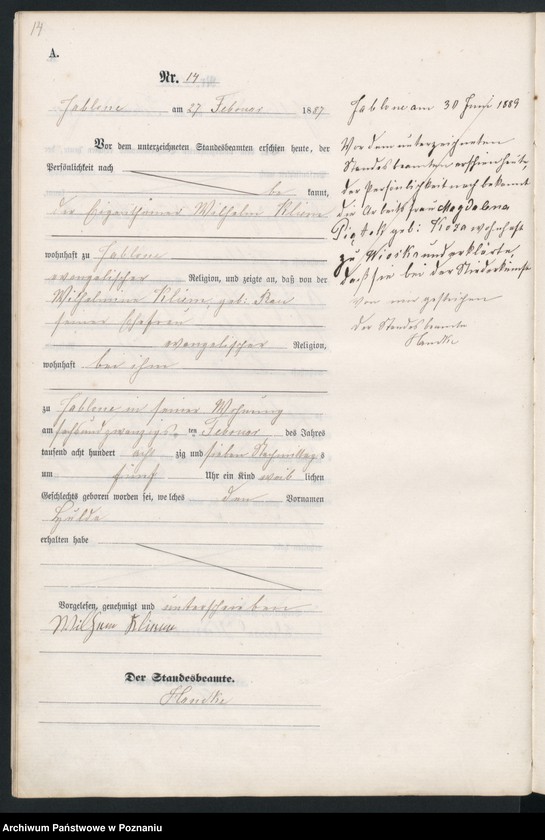 14
A.
Nr. 14
Jablone am 27 Februar 1887
Vor dem unterzeichneten Standesbeamten erschien heute, der
Persönlichkeit nach be kannt,
der Eigenthümer Wilhelm Kliem
wohnhaft zu Jablone
evangelischer Religion, und zeigte an, daß von der
Wilhelmine Kliem, geb:
seiner Ehefrau
evangelischer Religion,
wohnhaft bei ihm
zu Jablone in seiner Wohnung
am sechsundzwanzigs ten Februar des Jahres
tausend acht hundert acht zig und sieben Nachmittags
um fünf Uhr ein Kind weib lichen
Geschlechts geboren worden sei, welches den Vornamen
Hulda
erhalten habe
Vorgelesen, genehmigt und unterschrieben
Wilhelm Kliem
Der Standesbeamte.
Handke
Jablone am 30 Juni 1889
Vor dem unterzeichneten
Standesbeamten erschien heute,
der Persönlichkeit nach bekannt
die Arbeitsfrau Magdalena
geb: Koza wohnhaft
zu Wioska und erklärte,
daß sie bei der Niederkunft
von mir gestrichen
Der Standesbeamte
Handke
Archiwum Państwowe w Poznaniu